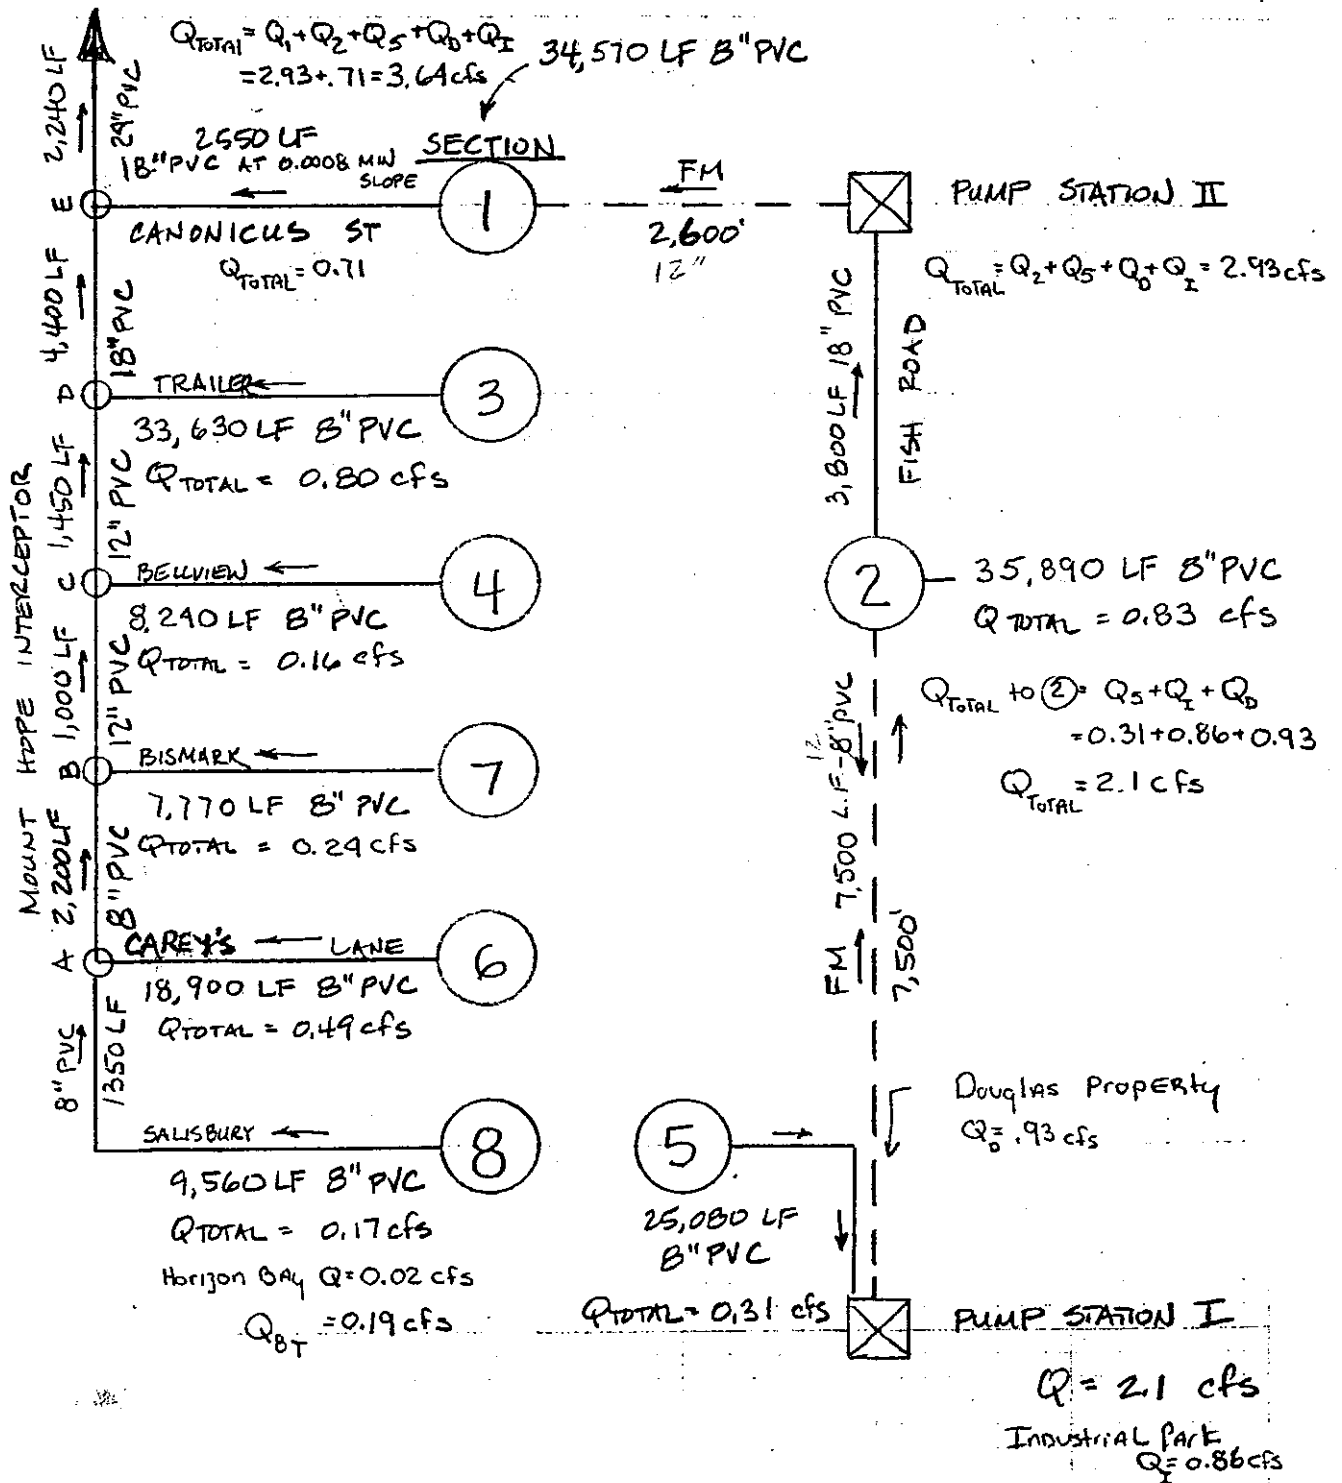 Q TOTAL = Q1+Q2+Q5+QD+QI
=2.93+.71=3.64cfs
34,570 LF 8" PVC
2,240 LF
24" PVC
2550 LF
18" PVC AT 0.0008 MIN
SLOPE
SECTION
E
1
FM
2,600'
12"
PUMP STATION II
CANONICUS ST
Q TOTAL = 0.71
Q TOTAL = Q2+Q5+QD+QI = 2.93cfs
4,400 LF
18" PVC
3,800 LF 18" PVC
FISH ROAD
D
TRAILER
3
33,630 LF 8" PVC
Q TOTAL = 0.80 cfs
MOUNT HOPE INTERCEPTOR
1,450 LF
12" PVC
C
BELLVIEW
4
8,240 LF 8" PVC
Q TOTAL = 0.16 cfs
2
35,890 LF 8" PVC
Q TOTAL = 0.83 cfs
1,000 LF
12" PVC
Q TOTAL to 2 = Q5+QI+QD
=0.31+0.86+0.93
Q TOTAL = 2.1 cfs
B
BISMARK
7
7,770 LF 8" PVC
Q TOTAL = 0.24 cfs
12
7,500 L.F - 8" PVC
FM
7,500'
2,200 LF
8" PVC
A
CAREY'S LANE
6
18,900 LF 8" PVC
Q TOTAL = 0.49 cfs
8" PVC
1350 LF
Douglas Property
QD = .93 cfs
SALISBURY
8
9,560 LF 8" PVC
Q TOTAL = 0.17 cfs
Horizon BAy Q=0.02 cfs
Q8T =0.19 cfs
5
25,080 LF
8" PVC
Q TOTAL = 0.31 cfs
PUMP STATION I
Q = 2.1 cfs
Industrial Park
QI = 0.86 cfs